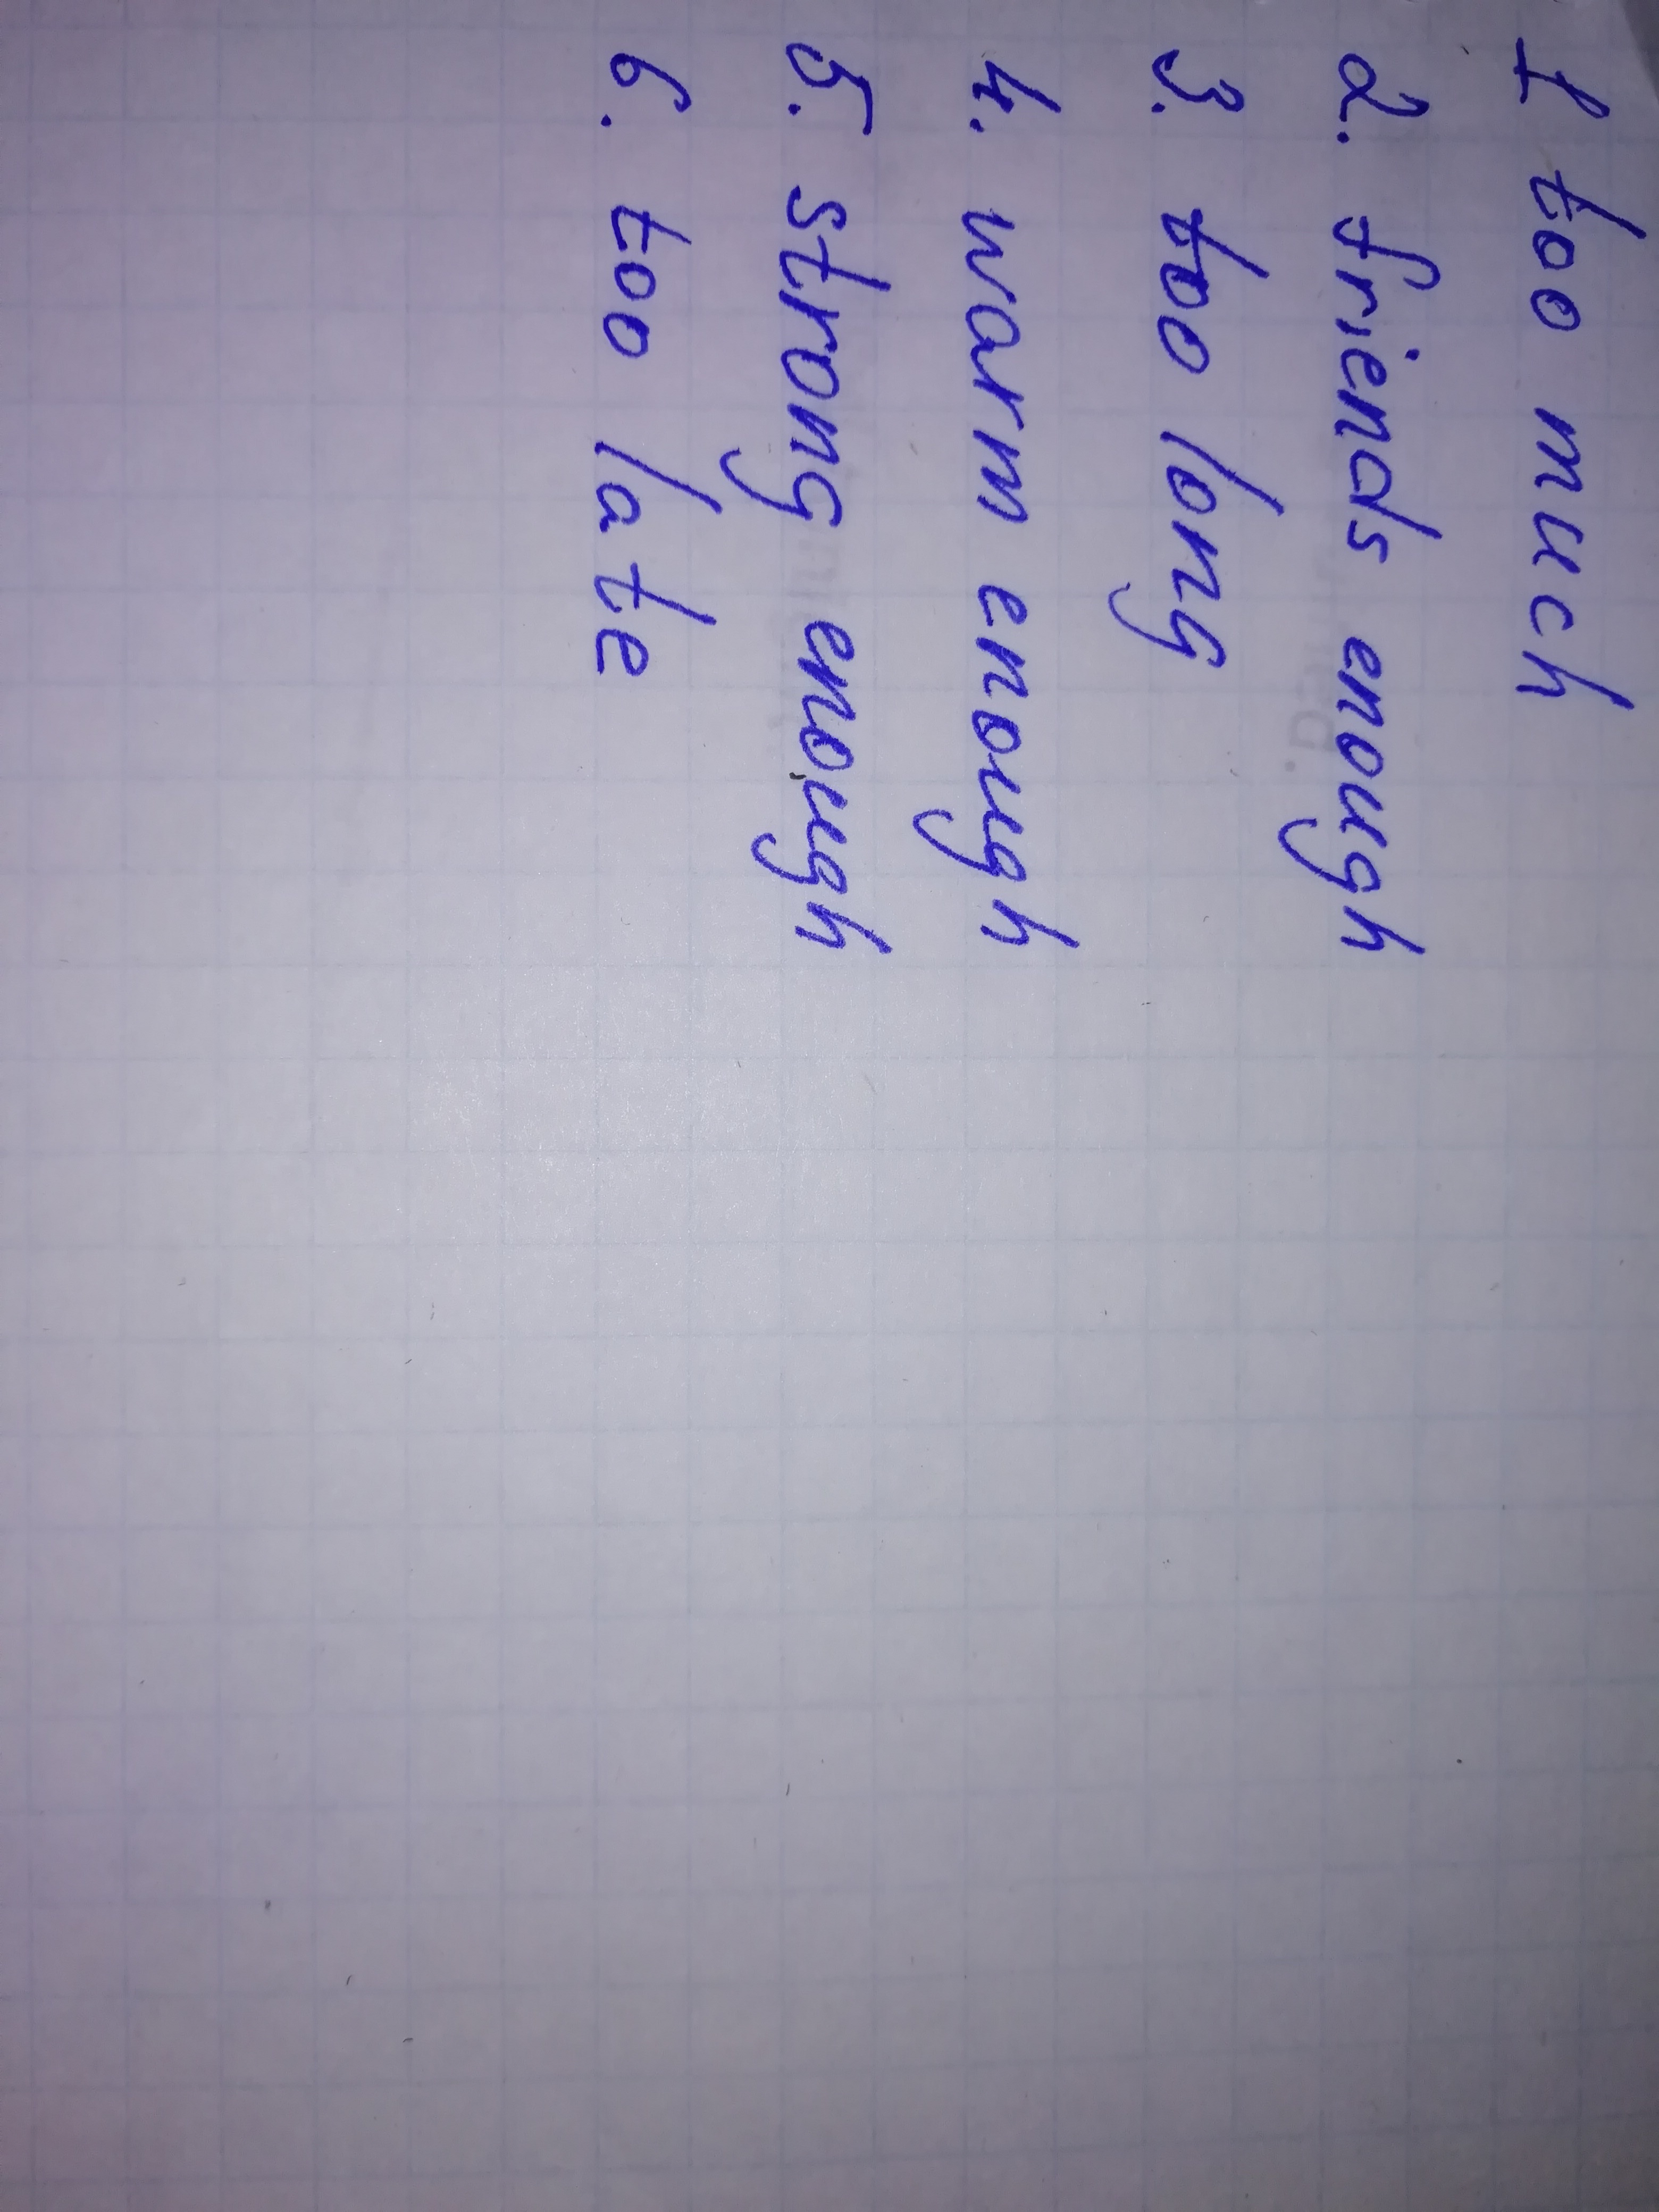 1 too much
2. friends enough
3. too long
4. warm enough
5. strong enough
6. too late